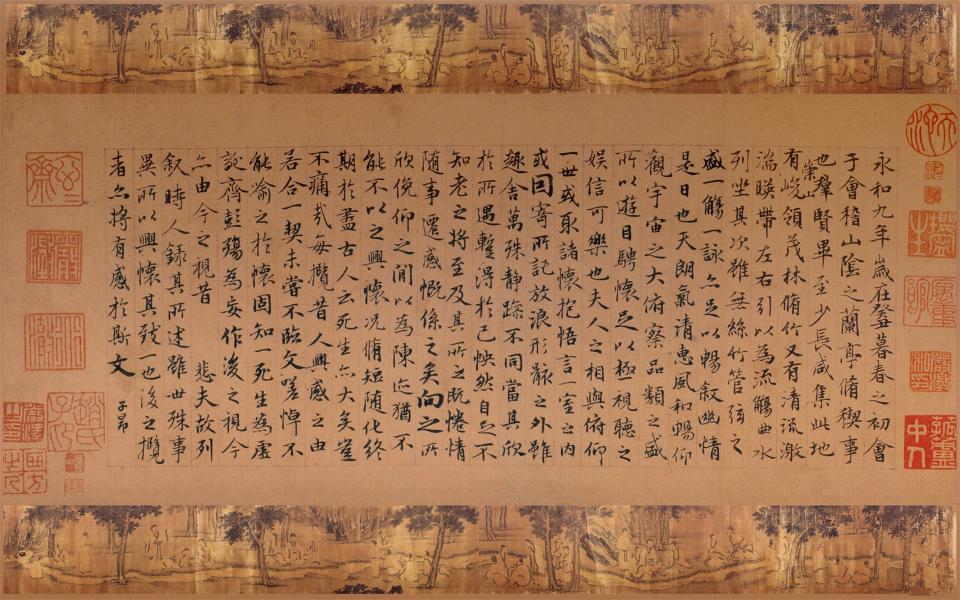 永和九年歲在癸丑暮春之初會
于會稽山陰之蘭亭脩稧事
也羣賢畢至少長咸集此地
有崇山峻領茂林脩竹又有清流激
湍暎帶左右引以為流觴曲水
列坐其次雖無絲竹管弦之
盛一觴一詠亦足以暢敘幽情
是日也天朗氣清惠風和暢仰
觀宇宙之大俯察品類之盛
所以遊目騁懷足以極視聽之
娛信可樂也夫人之相與俯仰
一世或取諸懷抱悟言一室之內
或因寄所託放浪形骸之外雖
趣舍萬殊静躁不同當其欣
於所遇蹔得於己怏然自足不
知老之將至及其所之既惓情
隨事遷感慨係之矣向之所
欣俛仰之閒以為陳迹猶不
能不以之興懷況脩短隨化終
期於盡古人云死生亦大矣豈
不痛哉每攬昔人興感之由
若合一契未嘗不臨文嗟悼不
能喻之於懷固知一死生為虛
誕齊彭殤為妄作後之視今
亦由今之視昔 悲夫故列
敘時人錄其所述雖世殊事
異所以興懷其致一也後之攬
者亦將有感於斯文
子昂